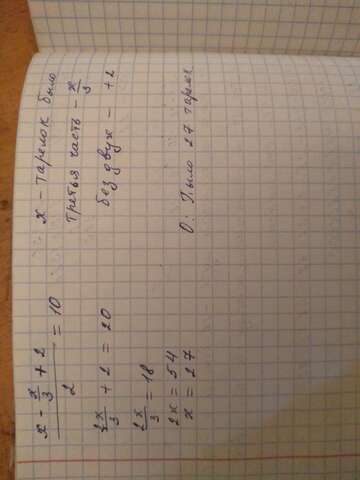 x - x/3 + 2
2
= 10
2x/3 + 2 = 20
2x/3 = 18
2x = 54
x = 27
x - тарелок было
Третья часть - x/3
без двух - +2
О: Было 27 тарелок